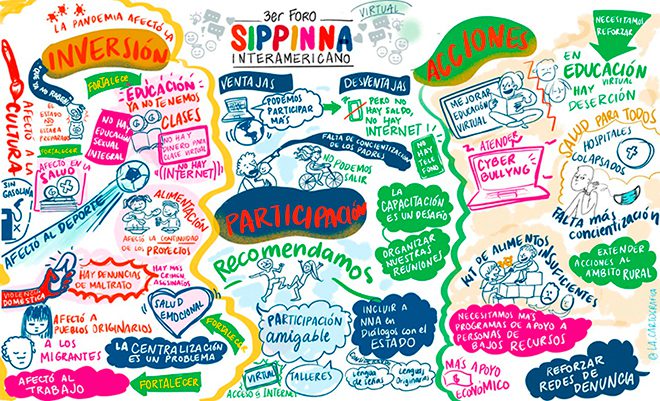 LA PANDEMIA AFECTÓ LA
INVERSIÓN
FORTALECER
EL ESTADO
NO ESTABA
PREPARADO
FORTALECER
AFECTÓ A LA
CULTURA
EDUCACIÓN
YA NO TENEMOS
CLASES
NO HAY
EDUCACIÓN
SEXUAL
INTEGRAL
NO HAY
DINERO PARA
CLASE VIRTUAL
NO HAY
(INTERNET)
AFECTÓ EN LA
SALUD
SIN
GASOLINA
AFECTÓ AL DEPORTE
ALIMENTACIÓN
AFECTÓ LA CONTINUIDAD
DE LOS PROYECTOS
VIOLENCIA
DOMÉSTICA
HAY DENUNCIAS
DE MALTRATO
HAY MÁS
CRIMEN
ASESINATOS
SALUD
EMOCIONAL
FORTALECER
AFECTÓ A
PUEBLOS ORIGINARIOS
A LOS
MIGRANTES
LA CENTRALIZACIÓN
ES UN PROBLEMA
AFECTÓ AL
TRABAJO
FORTALECER
3er FORO
VIRTUAL
SIPPINNA
INTERAMERICANO
VENTAJAS
PODEMOS
PARTICIPAR
MÁS
DESVENTAJAS
PERO NO
HAY SALDO,
NO HAY
INTERNET!
FALTA DE CONCIENTIZACIÓN
DE LOS PADRES
NO PODEMOS
SALIR
NO HAY
TELÉFONO
PARTICIPACIÓN
LA
CAPACITACIÓN
ES UN DESAFÍO
ORGANIZAR
NUESTRAS
REUNIONES
Recomendamos
PARTICIPACIÓN
amigable
INCLUIR A
NNA EN
DIÁLOGOS CON EL
ESTADO
VIRTUAL
ACCESO A INTERNET
TALLERES
Lengua
de señas
Lenguas
Originarias
ACCIONES
NECESITAMOS
REFORZAR
MEJORAR
EDUCACIÓN
VIRTUAL
EN
EDUCACIÓN
VIRTUAL
HAY
DESERCIÓN
ATENDER
CYBER
BULLYNG
SALUD PARA TODOS
HOSPITALES
COLAPSADOS
FALTA MÁS
CONCIENTIZACIÓN
KIT DE ALIMENTOS
INSUFICIENTES
EXTENDER
ACCIONES AL
ÁMBITO RURAL
NECESITAMOS MÁS
PROGRAMAS DE APOYO A
PERSONAS DE
BAJOS RECURSOS
MÁS APOYO
ECONÓMICO
REFORZAR
REDES DE
DENUNCIA
@LA.CARTOGRAFIA